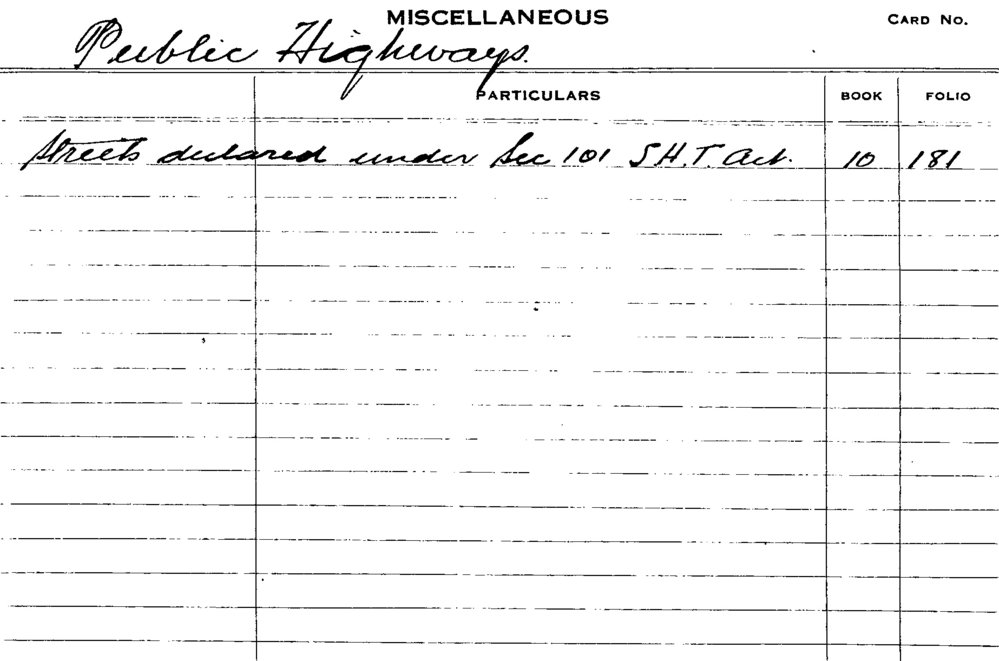 MISCELLANEOUS
CARD No.
Public Highways.
PARTICULARS
BOOK
FOLIO
Streets declared under Sec 101 S.H.T. Act. 10 181